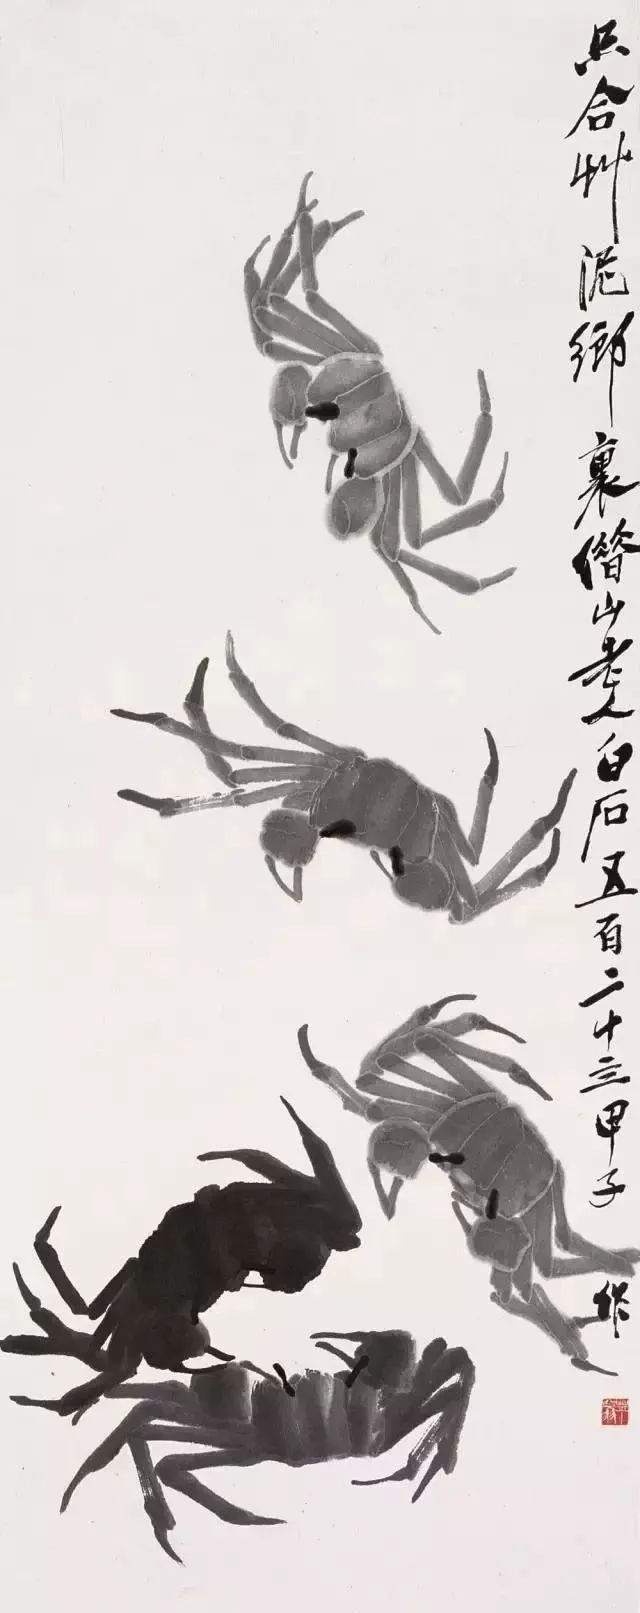 只合艸泥鄉裏借山老人白石五百二十三甲子作